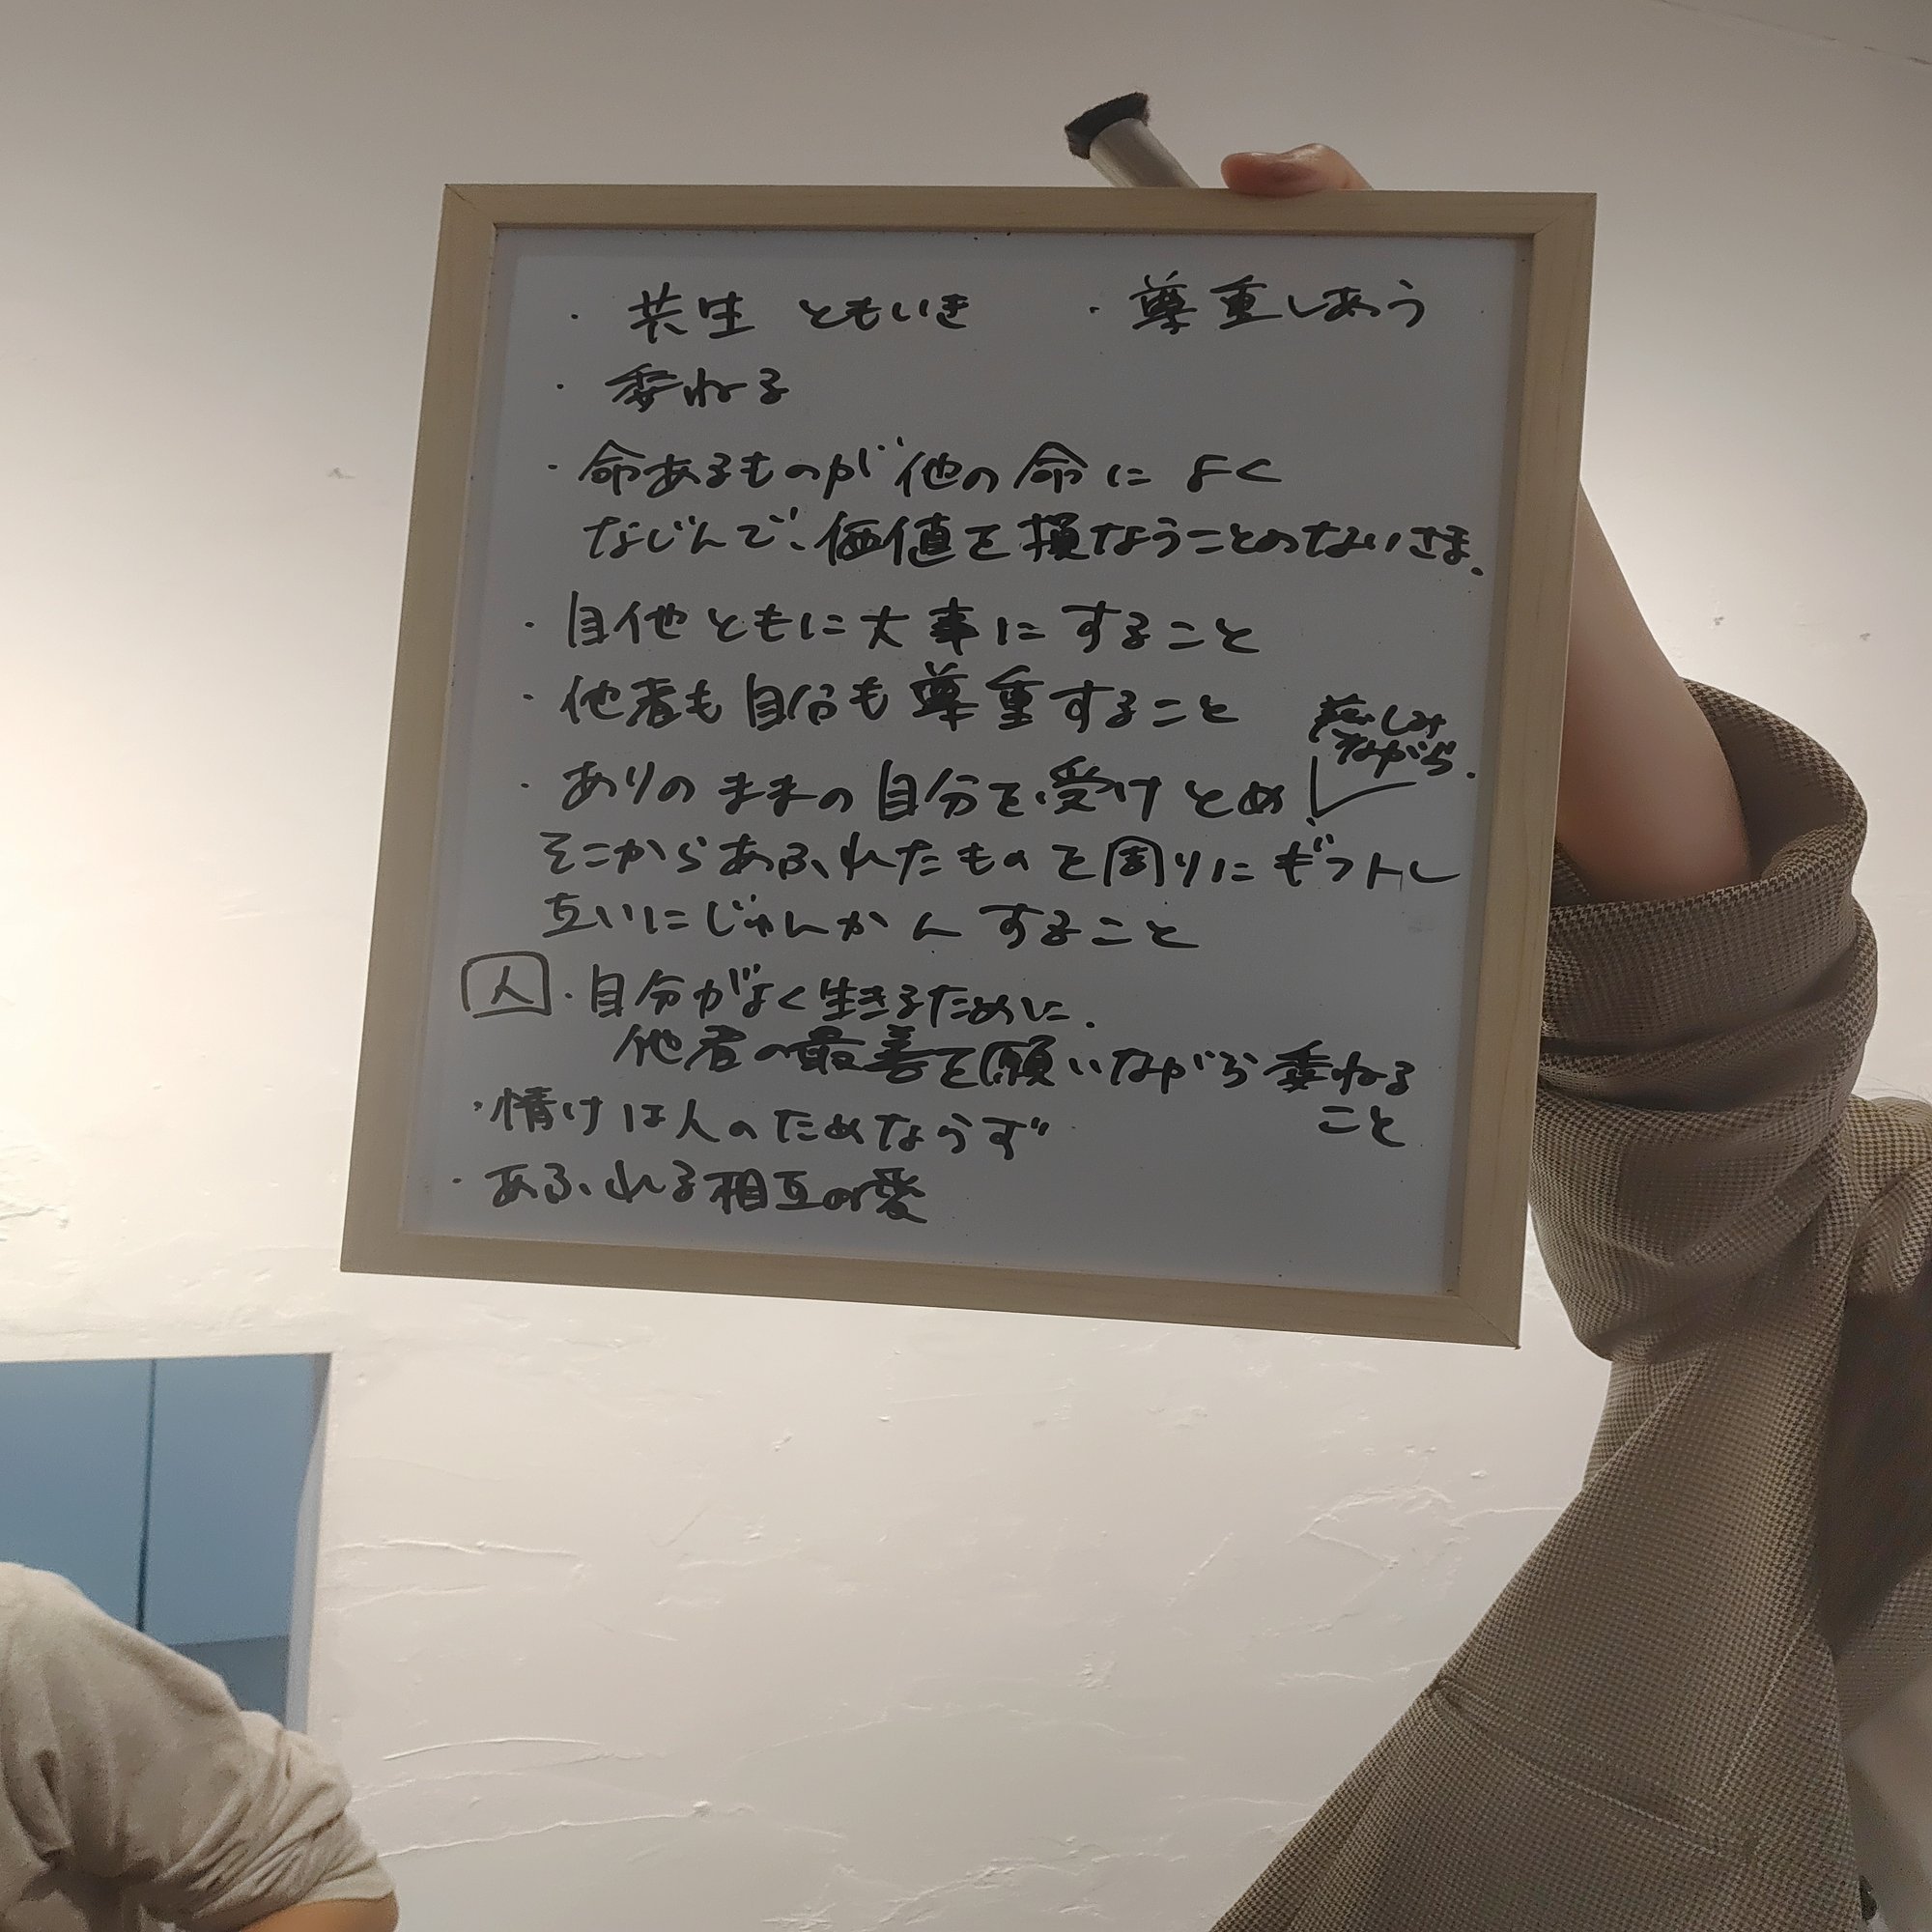 ・共生 ともいき ・尊重しあう
・委ねる
・命あるものが他の命によく
なじんで、価値を損なうことのないさま.
・自他ともに大事にすること
・他者も自分も尊重すること
・ありのままの自分を受けとめ
しみ
ながら.
そこからあふれたものを周りにギフトし
互いにじゅんかんすること
人・自分がよく生きるために.
他者の最善を願いながら委ねる
こと
・情けは人のためならず
・あふれる相互の愛